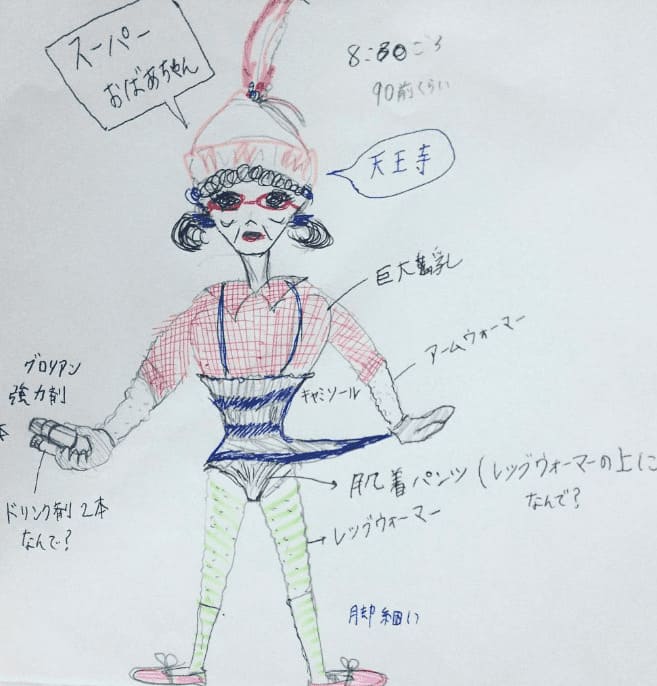 スーパー
おばあちゃん
8:30ごろ
90前くらい
天王寺
アームウォーマー
グロリアン
強力剤
本
キャミソール
ドリンク剤2本
なんで?
肌着パンツ(レッグウォーマーの上に
なんで?
レッグウォーマー
脚細い